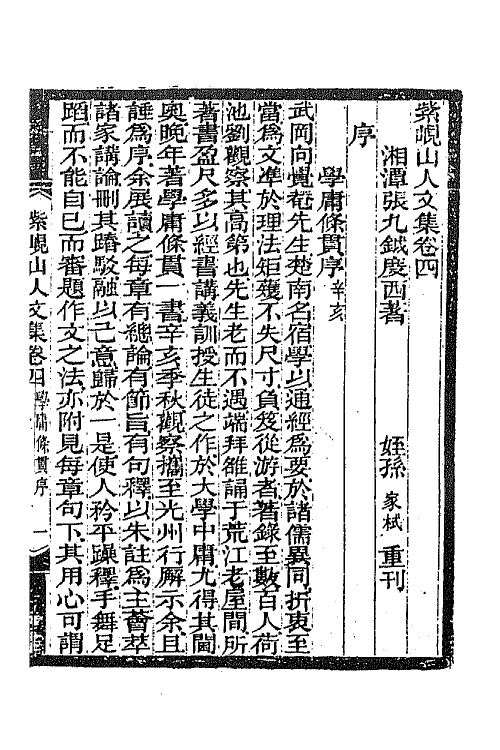 紫峴山人文集卷四
湘潭張九鉞度西著　姪孫家栻重刊
序
學庸條貫序辛亥
武岡向覺菴先生楚南名宿學以通經爲要於諸儒異同折衷至
當爲文凖於理法矩矱不失尺寸負笈從游者著錄至數百人荷
池劉觀察其高第也先生老而不遇端拜雒誦于荒江老屋間所
著書盈尺多以經書講義訓授生徒之作於大學中庸尤得其閫
奧晚年著學庸條貫一書辛亥季秋觀察攜至光州行廨示余且
諈爲序余展讀之每章有總論有節旨有句釋以朱註爲主薈萃
諸家講論刪其踳駁融以己意歸於一是使人矜平躁釋手舞足
蹈而不能自已而審題作文之法亦附見每章句下其用心可謂
紫峴山人文集卷四　學庸條貫序　一